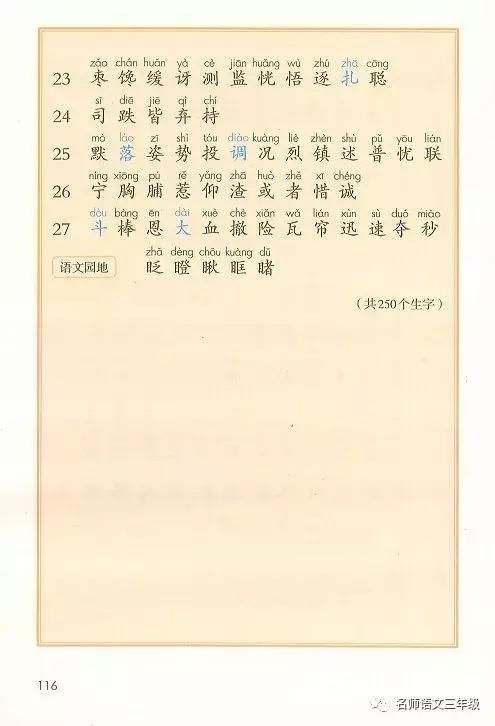 zǎo chán huǎn yà cè jiān huǎng wù zhú zhā cōng
23 枣 馋 缓 讶 测 监 恍 悟 逐 扎 聪
sī diē jiē qì chí
24 司 跌 皆 弃 持
mò lào zī shì tóu diào kuàng liè zhèn shù pǔ yōu lián
25 默 落 姿 势 投 调 况 烈 镇 述 普 忧 联
níng xiōng pú rě yǎng zhā huò zhě xī chéng
26 宁 胸 脯 惹 仰 渣 或 者 惜 诚
dǒu bàng ēn dài xuè chè xiǎn wǎ lián xùn sù duó miǎo
27 斗 棒 恩 大 血 撤 险 瓦 帘 迅 速 夺 秒
zhǎ dèng chǒu kuàng dǔ
语文园地 眨 瞪 瞅 眶 睹
（共250个生字）
116
名师语文三年级